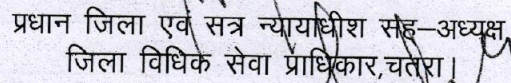 प्रधान जिला एवं सत्र न्यायाधीश सह–अध्यक्ष
जिला विधिक सेवा प्राधिकार,चतरा।